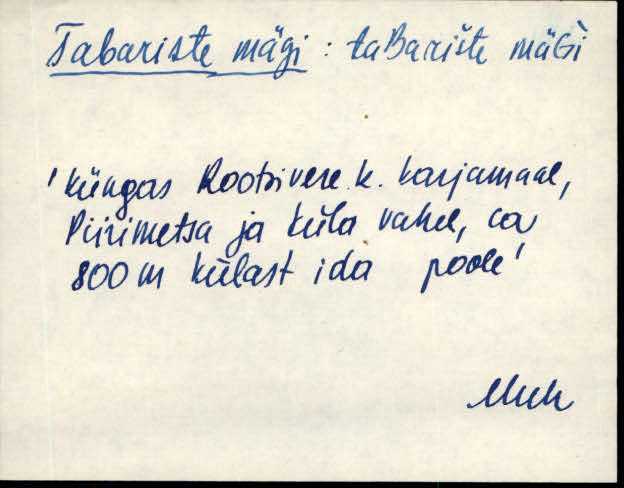 Tabariste mägi : taBarište mäGì
'küngas Rootsivere k. karjamaal,
Piirimetsa ja küla vahel, ca
800 m külast ida poole'
Muh